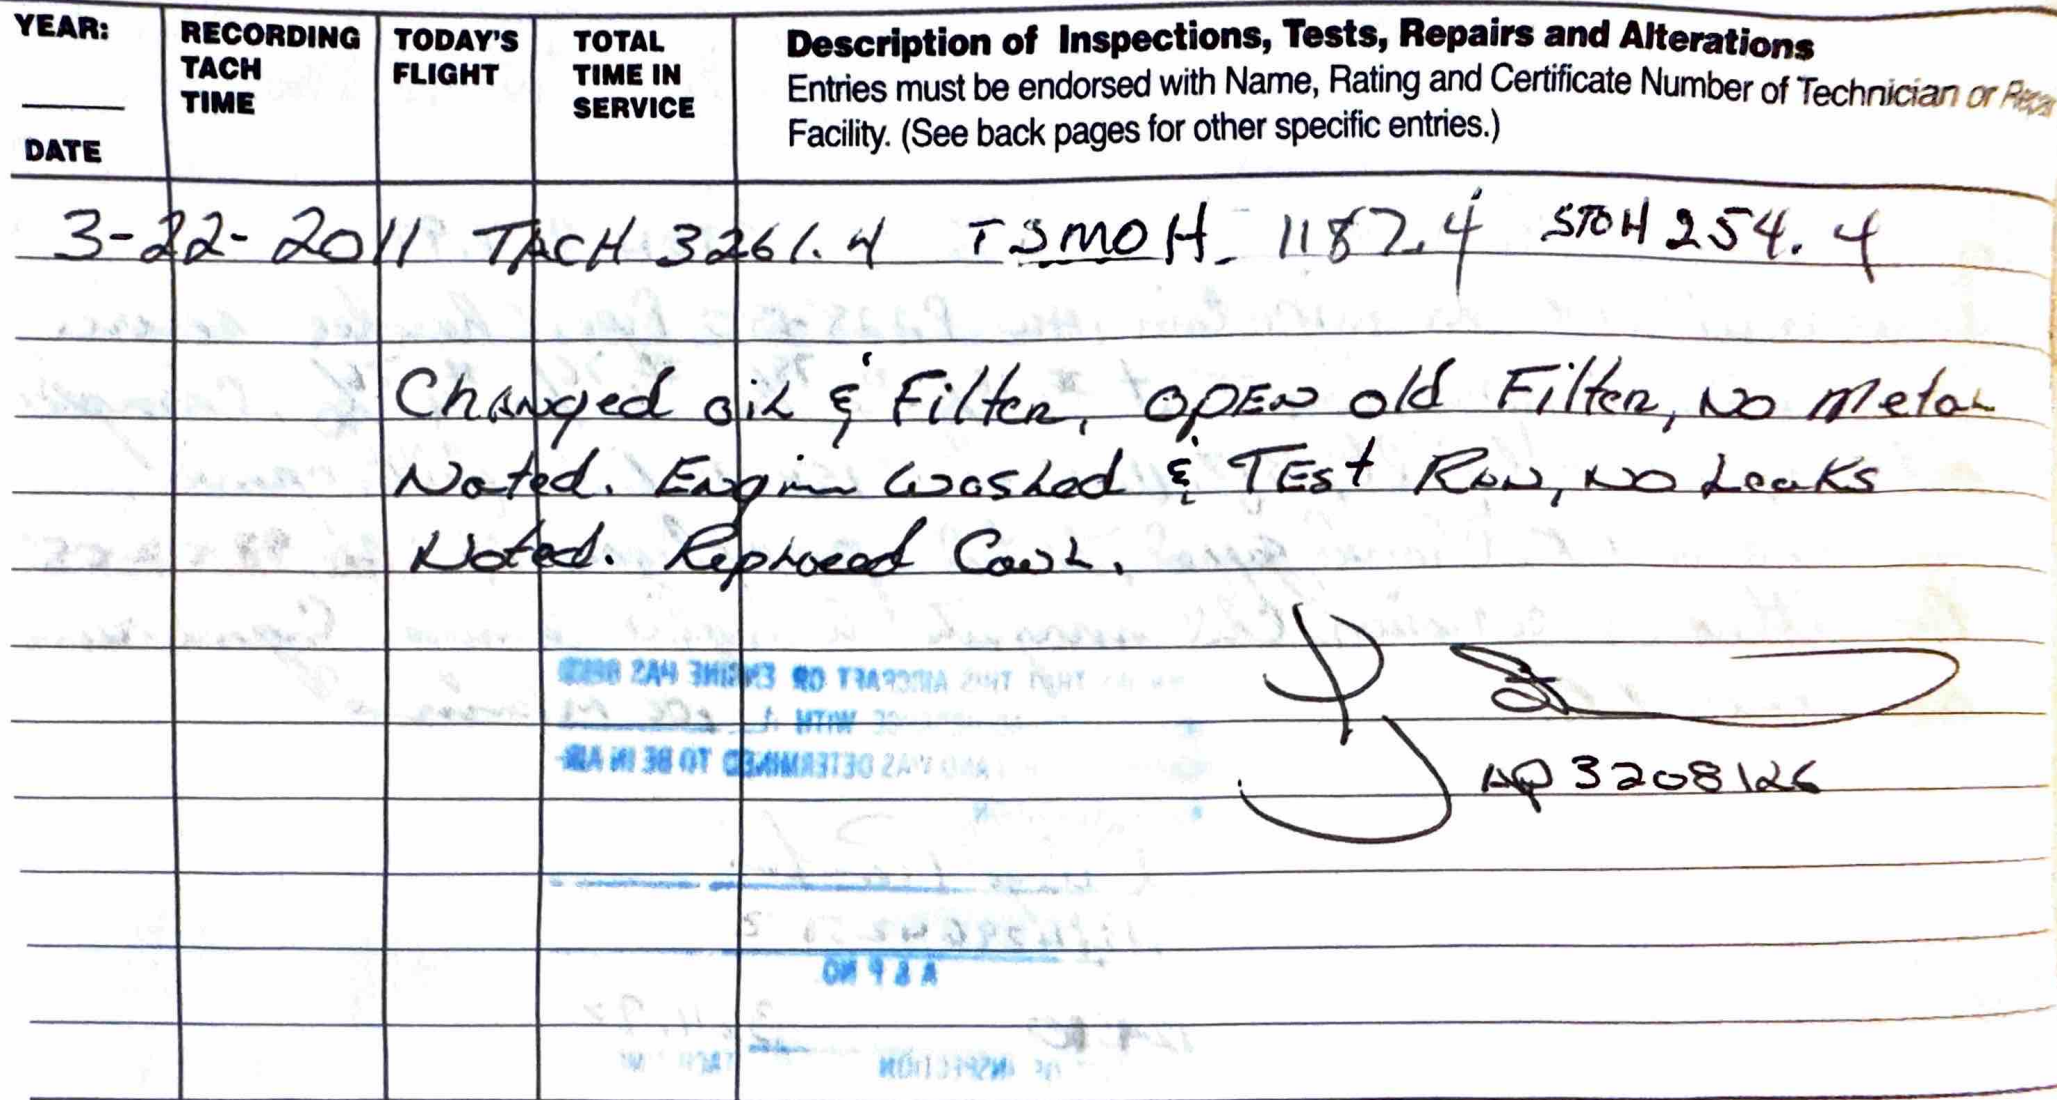 YEAR:
DATE
RECORDING
TACH
TIME
TODAY'S
FLIGHT
TOTAL
TIME IN
SERVICE
Description of Inspections, Tests, Repairs and Alterations
Entries must be endorsed with Name, Rating and Certificate Number of Technician or
Facility. (See back pages for other specific entries.)
3-22-2011 TACH 3261.4 TSMOH 1187.4 STOH 254.4
Changed oil & Filter, OPEN old Filter, No Metal
Noted. Engine Washed & TEst Run, No Leaks
Noted. Replaced Cowl.
AP 3208126